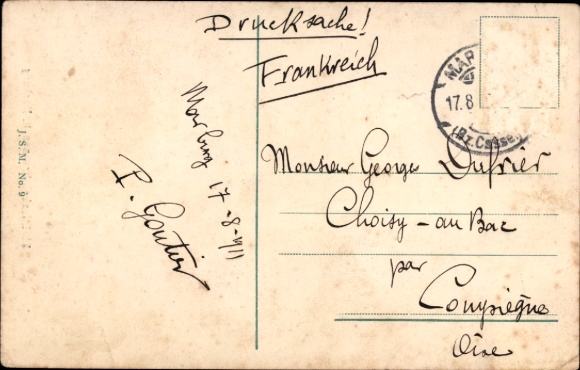 Drucksache!
Frankreich
MAR
17.8
(Bz. Cassel)
Marburg 17-8-1911
P. Gontier
Monsieur Georges Dufrier
Choisy-au Bac
par
Compiègne
Oise
J. S. M. No. 9